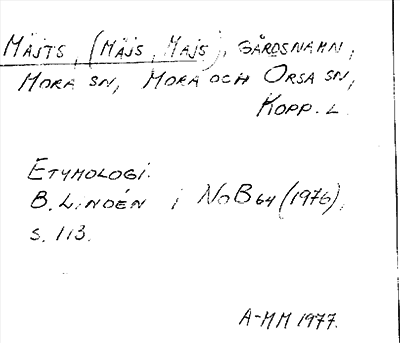 MÄJTS, (MÄJS, MAJS), GÅRDSNAMN,
MORA SN, MORA OCH ORSA SN,
KOPP. L.
ETYMOLOGI.
B. LINDÉN i NoB 64 (1976),
S. 113.
A-MM 1977.